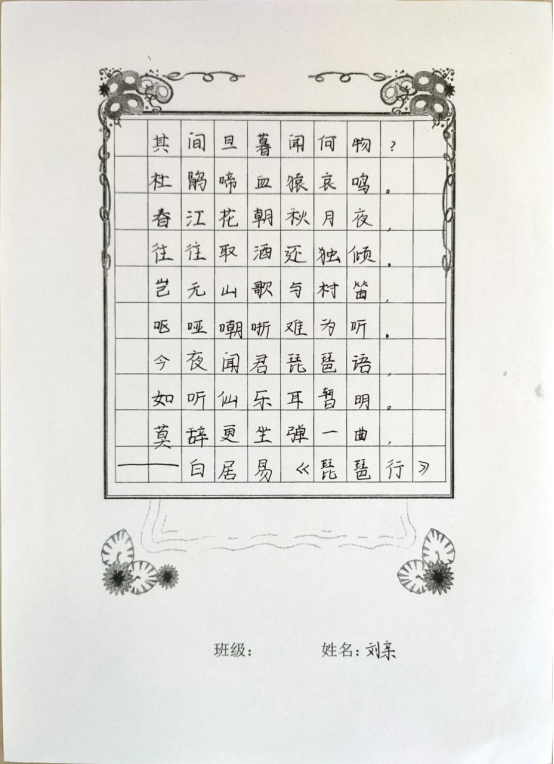 其间旦暮闻何物?
杜鹃啼血猿哀鸣。
春江花朝秋月夜,
往往取酒还独倾。
岂无山歌与村笛,
呕哑嘲哳难为听。
今夜闻君琵琶语,
如听仙乐耳暂明。
莫辞更坐弹一曲,
——白居易《琵琶行》
班级: 姓名:刘亲